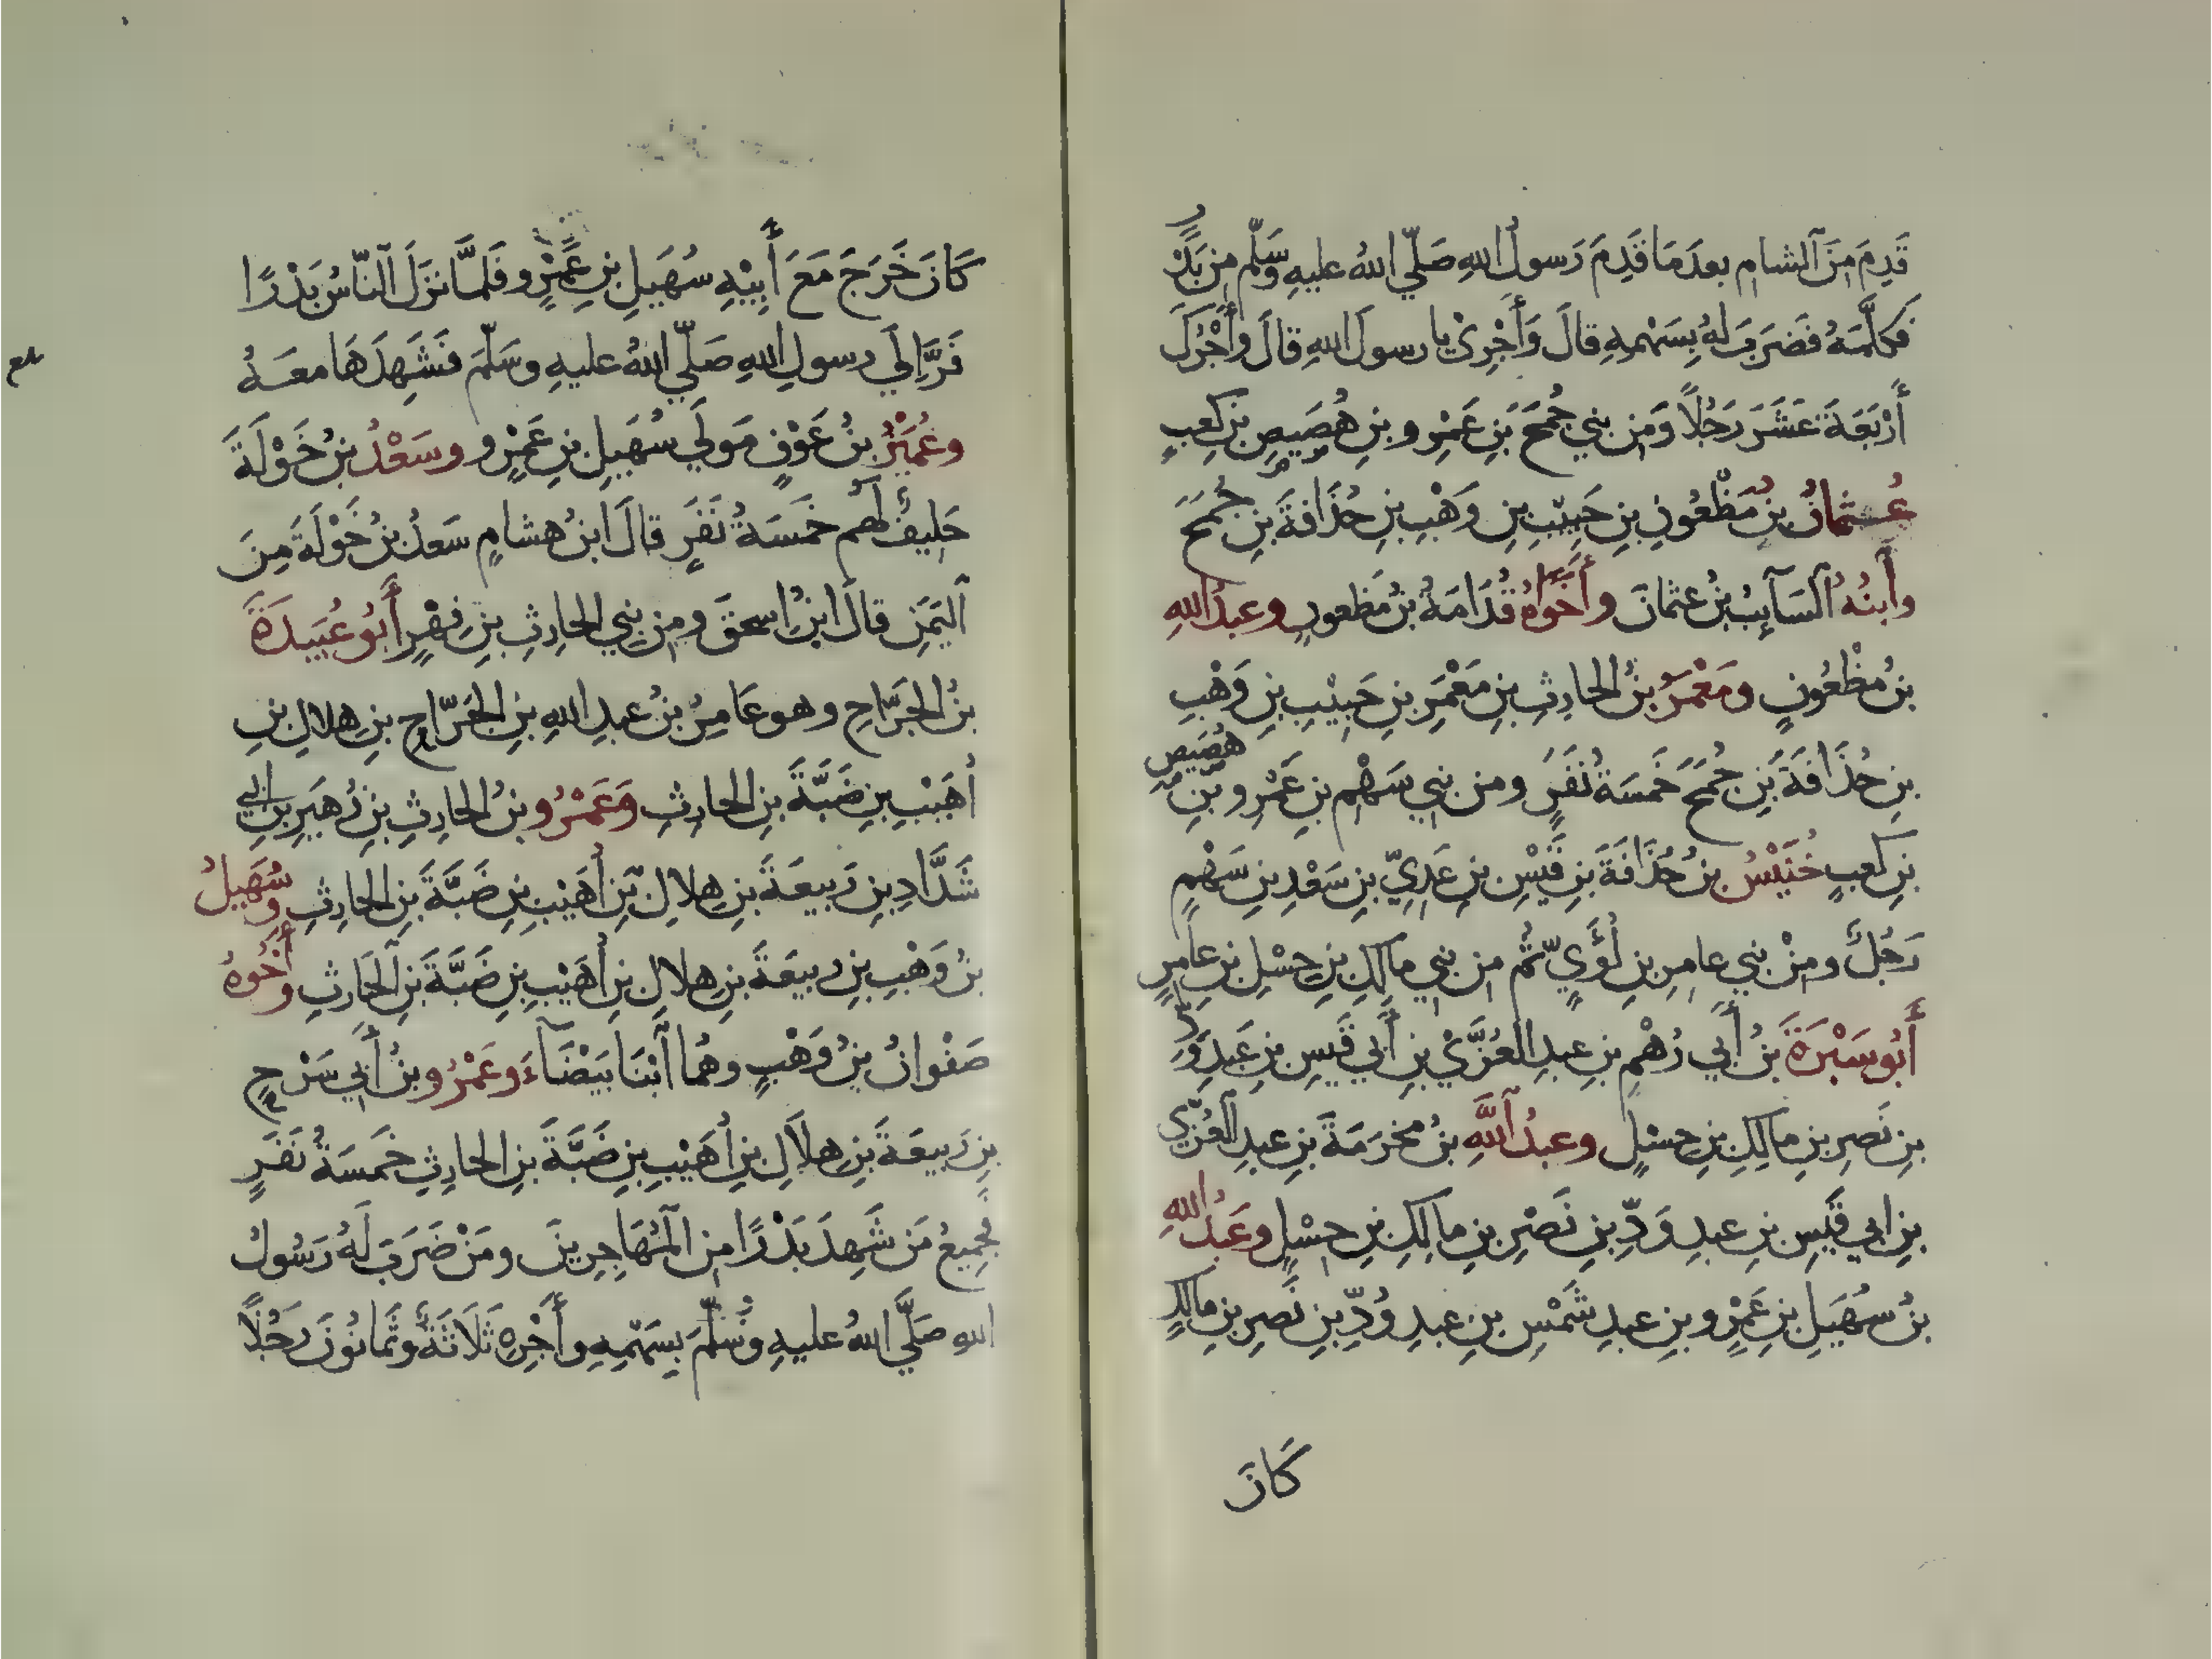 قَدِمَ مِنَ ٱلشامِ بعدَ مَا قَدِمَ رَسولُ اللهِ صَلّي اللهُ عليهِ وسَلّم مِن بَدْرٍ
فَكَلَّمَهُ فَضَرَبَ لهُ بِسَهْمِهِ قالَ وَأَجْرِيْ يا رسولَ اللهِ قالَ وأَجْرُكَ
أَرْبَعَةَ عَشَرَ رَجُلاً وَمِن بني جُمَحَ بنِ عَمْرِو بنِ هُصَيصِ بنِ كعبٍ
عُثمانُ بنُ مَظْعُونِ بنِ حَبِيْبِ بنِ وَهْبِ بنِ حُذَافةَ بنِ جُمَحَ
وٱبنُهُ ٱلسَآيِبُ بنُ عثمانَ وأَخَوَاهُ قُدَامَةُ بنُ مَظعونٍ وعبدُ اللهِ
بنُ مظْعُونٍ ومَعْمَرُ بنُ الحارِثِ بنِ مَعْمَرِ بنِ حَبِيْبِ بنِ وَهْبِ
بنِ حُذَافَةَ بنِ جُمَحَ خَمسَةُ نَفَرٍ ومن بني سَهْمِ بنِ عَمْرِو بنِ هُصَيصِ
بنِ كعبٍ خُنَيْسُ بنُ حُذَافَةَ بنِ قَيْسِ بنِ عَدِيِّ بنِ سَعْدِ بنِ سَهْمٍ
رَجُلٌ ومِنْ بني عامرِ بنِ لُؤَيٍّ ثُم من بني مالكِ بنِ حِسْلِ بنِ عامرٍ
أَبُو سَبْرَةَ بنُ أَبي رُهْمِ بنِ عبدِ العُزَّيْ بنِ أَبي قَيسِ بنِ عَبدِ وَدِّ
بنِ نَصرِ بنِ مالكِ بنِ حِسْلٍ وعبدُ ٱللَّهِ بنُ مخرَمَةَ بنِ عبدِ العُزّي
بنِ ابي قَيسِ بنِ عبدِ وَدِّ بنِ نَصْرِ بنِ مالكِ بنِ حِسْلٍ وعَبدُ اللهِ
بنُ سُهَيلِ بنِ عَمْرِو بنِ عبدِ شَمْسِ بنِ عبدِ وُدِّ بنِ نَصرِ بنِ مالكٍ
كَانَ
كَانَ خَرَجَ مَعَ أَبِيْهِ سُهَيلِ بنِ عَمْرٍو فَلمَّا نزَلَ ٱلنّاسُ بَدْرًا
فَرَّ إلَي رسولِ اللهِ صَلّي اللهُ عليهِ وسَلّمَ فَشَهِدَهَا معَهُ
وعُمَيْرُ بنُ عَوْفٍ مَولَي سُهَيلِ بنِ عَمْرٍو وسَعْدُ بنُ خَوْلَةَ
حَلِيفٌ لهُم خَمسَةُ نَفَرٍ قالَ ابنُ هشامٍ سَعدُ بنُ خَوْلَةَ مِنَ
ٱليَمَنِ قالَ ابنُ اسحقَ ومِن بني الحارِثِ بنِ فِهْرٍ أَبُو عُبَيدَةَ
بنُ الجَرّاحِ وهو عَامِرُ بنُ عبدِ اللهِ بنِ الجَرّاحِ بنِ هِلالِ بنِ
أُهَيْبِ بنِ ضَبَّةَ بنِ الحارِثِ وَعَمْرُو بنُ الحارِثِ بنِ زُهَيرِ بنِ ابي
شَدَّادِ بنِ رَبيعَةَ بنِ هِلالِ بنِ أُهَيْبِ بنِ ضَبَّةَ بنِ الحارِثِ وسُهَيلُ
بنُ وَهْبِ بنِ ربيعَةَ بنِ هِلالِ بنِ أُهَيْبِ بنِ ضَبَّةَ بنِ ٱلحَارثِ وأَخُوهُ
صَفْوانُ بنُ وَهْبٍ وهُما ٱبْنَا بَيْضَآءَ وعَمْرُو بنُ أَبي سَرْحِ
بنِ رَبيعَةَ بنِ هِلاَلِ بنِ أُهَيْبِ بنِ ضَبَّةَ بنِ الحارِثِ خَمسَةُ نَفَرٍ
فجَمِيعُ مَن شَهِدَ بَدْرًا مِن ٱلمُهَاجِرِينَ ومَنْ ضَرَبَ لَهُ رَسُولُ
اللهِ صَلَّي اللهُ عليهِ وسَلّمَ بِسَهْمِهِ وأَجْرِهِ ثَلَاثَةٌ وثَمانُونَ رَجُلًا